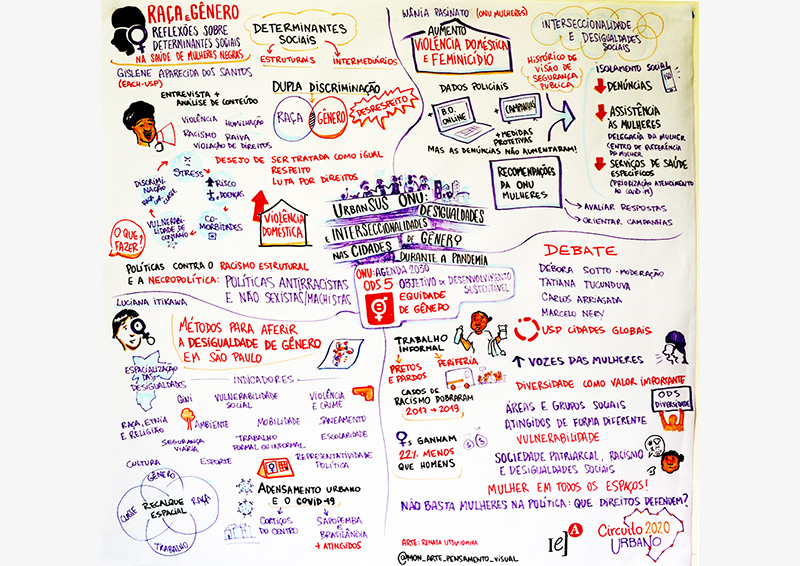 RAÇA E GÊNERO
REFLEXÕES SOBRE
DETERMINANTES SOCIAIS
NA SAÚDE DE MULHERES NEGRAS
GISLENE APARECIDA DOS SANTOS
(EACH-USP)
DETERMINANTES
SOCIAIS
ESTRUTURAIS
INTERMEDIÁRIOS
ENTREVISTA +
ANÁLISE DE CONTEÚDO
DUPLA DISCRIMINAÇÃO
RAÇA
GÊNERO
DESRESPEITO
VIOLÊNCIA
HUMILHAÇÃO
RACISMO
RAIVA
VIOLAÇÃO DE DIREITOS
DESEJO DE SER TRATADA COMO IGUAL
RESPEITO
LUTA POR DIREITOS
STRESS
DISCRIMI-
NAÇÃO
RAÇA
CLASSE
RISCO
DOENÇAS
VULNERABI-
LIDADE DE
CONTÁGIO
CO-
MORBIDADES
VIOLÊNCIA
DOMÉSTICA
O QUE
FAZER?
POLÍTICAS CONTRA O RACISMO ESTRUTURAL
E A NECROPOLÍTICA: POLÍTICAS ANTIRRACISTAS
E NÃO SEXISTAS/MACHISTAS
WÂNIA PASINATO (ONU MULHERES)
AUMENTO
VIOLÊNCIA DOMÉSTICA
E FEMINICÍDIO
INTERSECCIONALIDADE
E DESIGUALDADES
SOCIAIS
HISTÓRICO DE
VISÃO DE
SEGURANÇA
PÚBLICA
DADOS POLICIAIS
+ B.O. ONLINE
+ CAMPANHAS
+ MEDIDAS
PROTETIVAS
MAS AS DENÚNCIAS NÃO AUMENTARAM!
ISOLAMENTO SOCIAL
DENÚNCIAS
ASSISTÊNCIA
ÀS MULHERES
DELEGACIA DA MULHER
CENTRO DE REFERÊNCIA
DA MULHER
SERVIÇOS DE SAÚDE
ESPECÍFICOS
(PRIORIZAÇÃO ATENDIMENTO
AO COVID-19)
RECOMENDAÇÕES
DA ONU
MULHERES
AVALIAR RESPOSTAS
ORIENTAR CAMPANHAS
URBANSUS ONU: DESIGUALDADES
E INTERSECCIONALIDADES
DE GÊNERO
NAS CIDADES
DURANTE A PANDEMIA
ONU: AGENDA 2030
ODS 5: OBJETIVO DE DESENVOLVIMENTO
SUSTENTÁVEL
EQUIDADE
DE GÊNERO
LUCIANA ITIKAWA
MÉTODOS PARA AFERIR
A DESIGUALDADE DE GÊNERO
EM SÃO PAULO
ESPACIALIZAÇÃO
DAS
DESIGUALDADES
INDICADORES
GINI
VULNERABILIDADE
SOCIAL
VIOLÊNCIA
E CRIME
RAÇA, ETNIA
E RELIGIÃO
AMBIENTE
MOBILIDADE
SANEAMENTO
SEGURANÇA
VIÁRIA
TRABALHO
FORMAL OU INFORMAL
ESCOLARIDADE
CULTURA
ESPORTE
REPRESENTATIVIDADE
POLÍTICA
GÊNERO
CLASSE
RECALQUE
ESPACIAL
RAÇA
TRABALHO
ADENSAMENTO URBANO
E O COVID-19
CORTIÇOS
DO CENTRO
SAPOPEMBA
E
BRASILÂNDIA
+ ATINGIDOS
TRABALHO
INFORMAL
PRETOS
E PARDOS
PERIFERIA
CASOS DE
RACISMO DOBRARAM
2017 → 2019
♀S GANHAM
22% MENOS
QUE HOMENS
DEBATE
DÉBORA SOTTO - MODERAÇÃO
TATIANA TUCUNDUVA
CARLOS ARRIAGADA
MARCELO NERY
USP CIDADES GLOBAIS
VOZES DAS MULHERES
DIVERSIDADE COMO VALOR IMPORTANTE
ODS
DIVERSIDADE
ÁREAS E GRUPOS SOCIAIS
ATINGIDOS DE FORMA DIFERENTE
VULNERABILIDADE
SOCIEDADE PATRIARCAL, RACISMO
E DESIGUALDADES SOCIAIS
MULHER EM TODOS OS ESPAÇOS!
NÃO BASTA MULHERES NA POLÍTICA: QUE DIREITOS DEFENDEM?
ARTE: RENATA UTSUNOMIYA
@MON_ARTE_PENSAMENTO_VISUAL
IEA
CIRCUITO 2020
URBANO